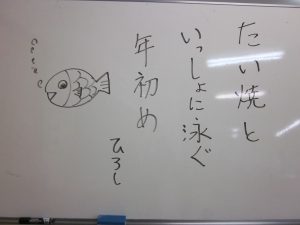 たい焼と
いっしょに泳ぐ
年初め
ひろし